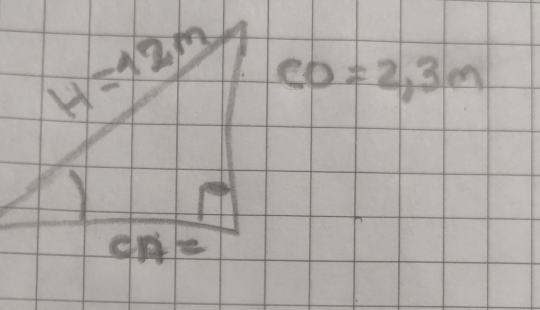 H=12m
CO=2,3m
CA=